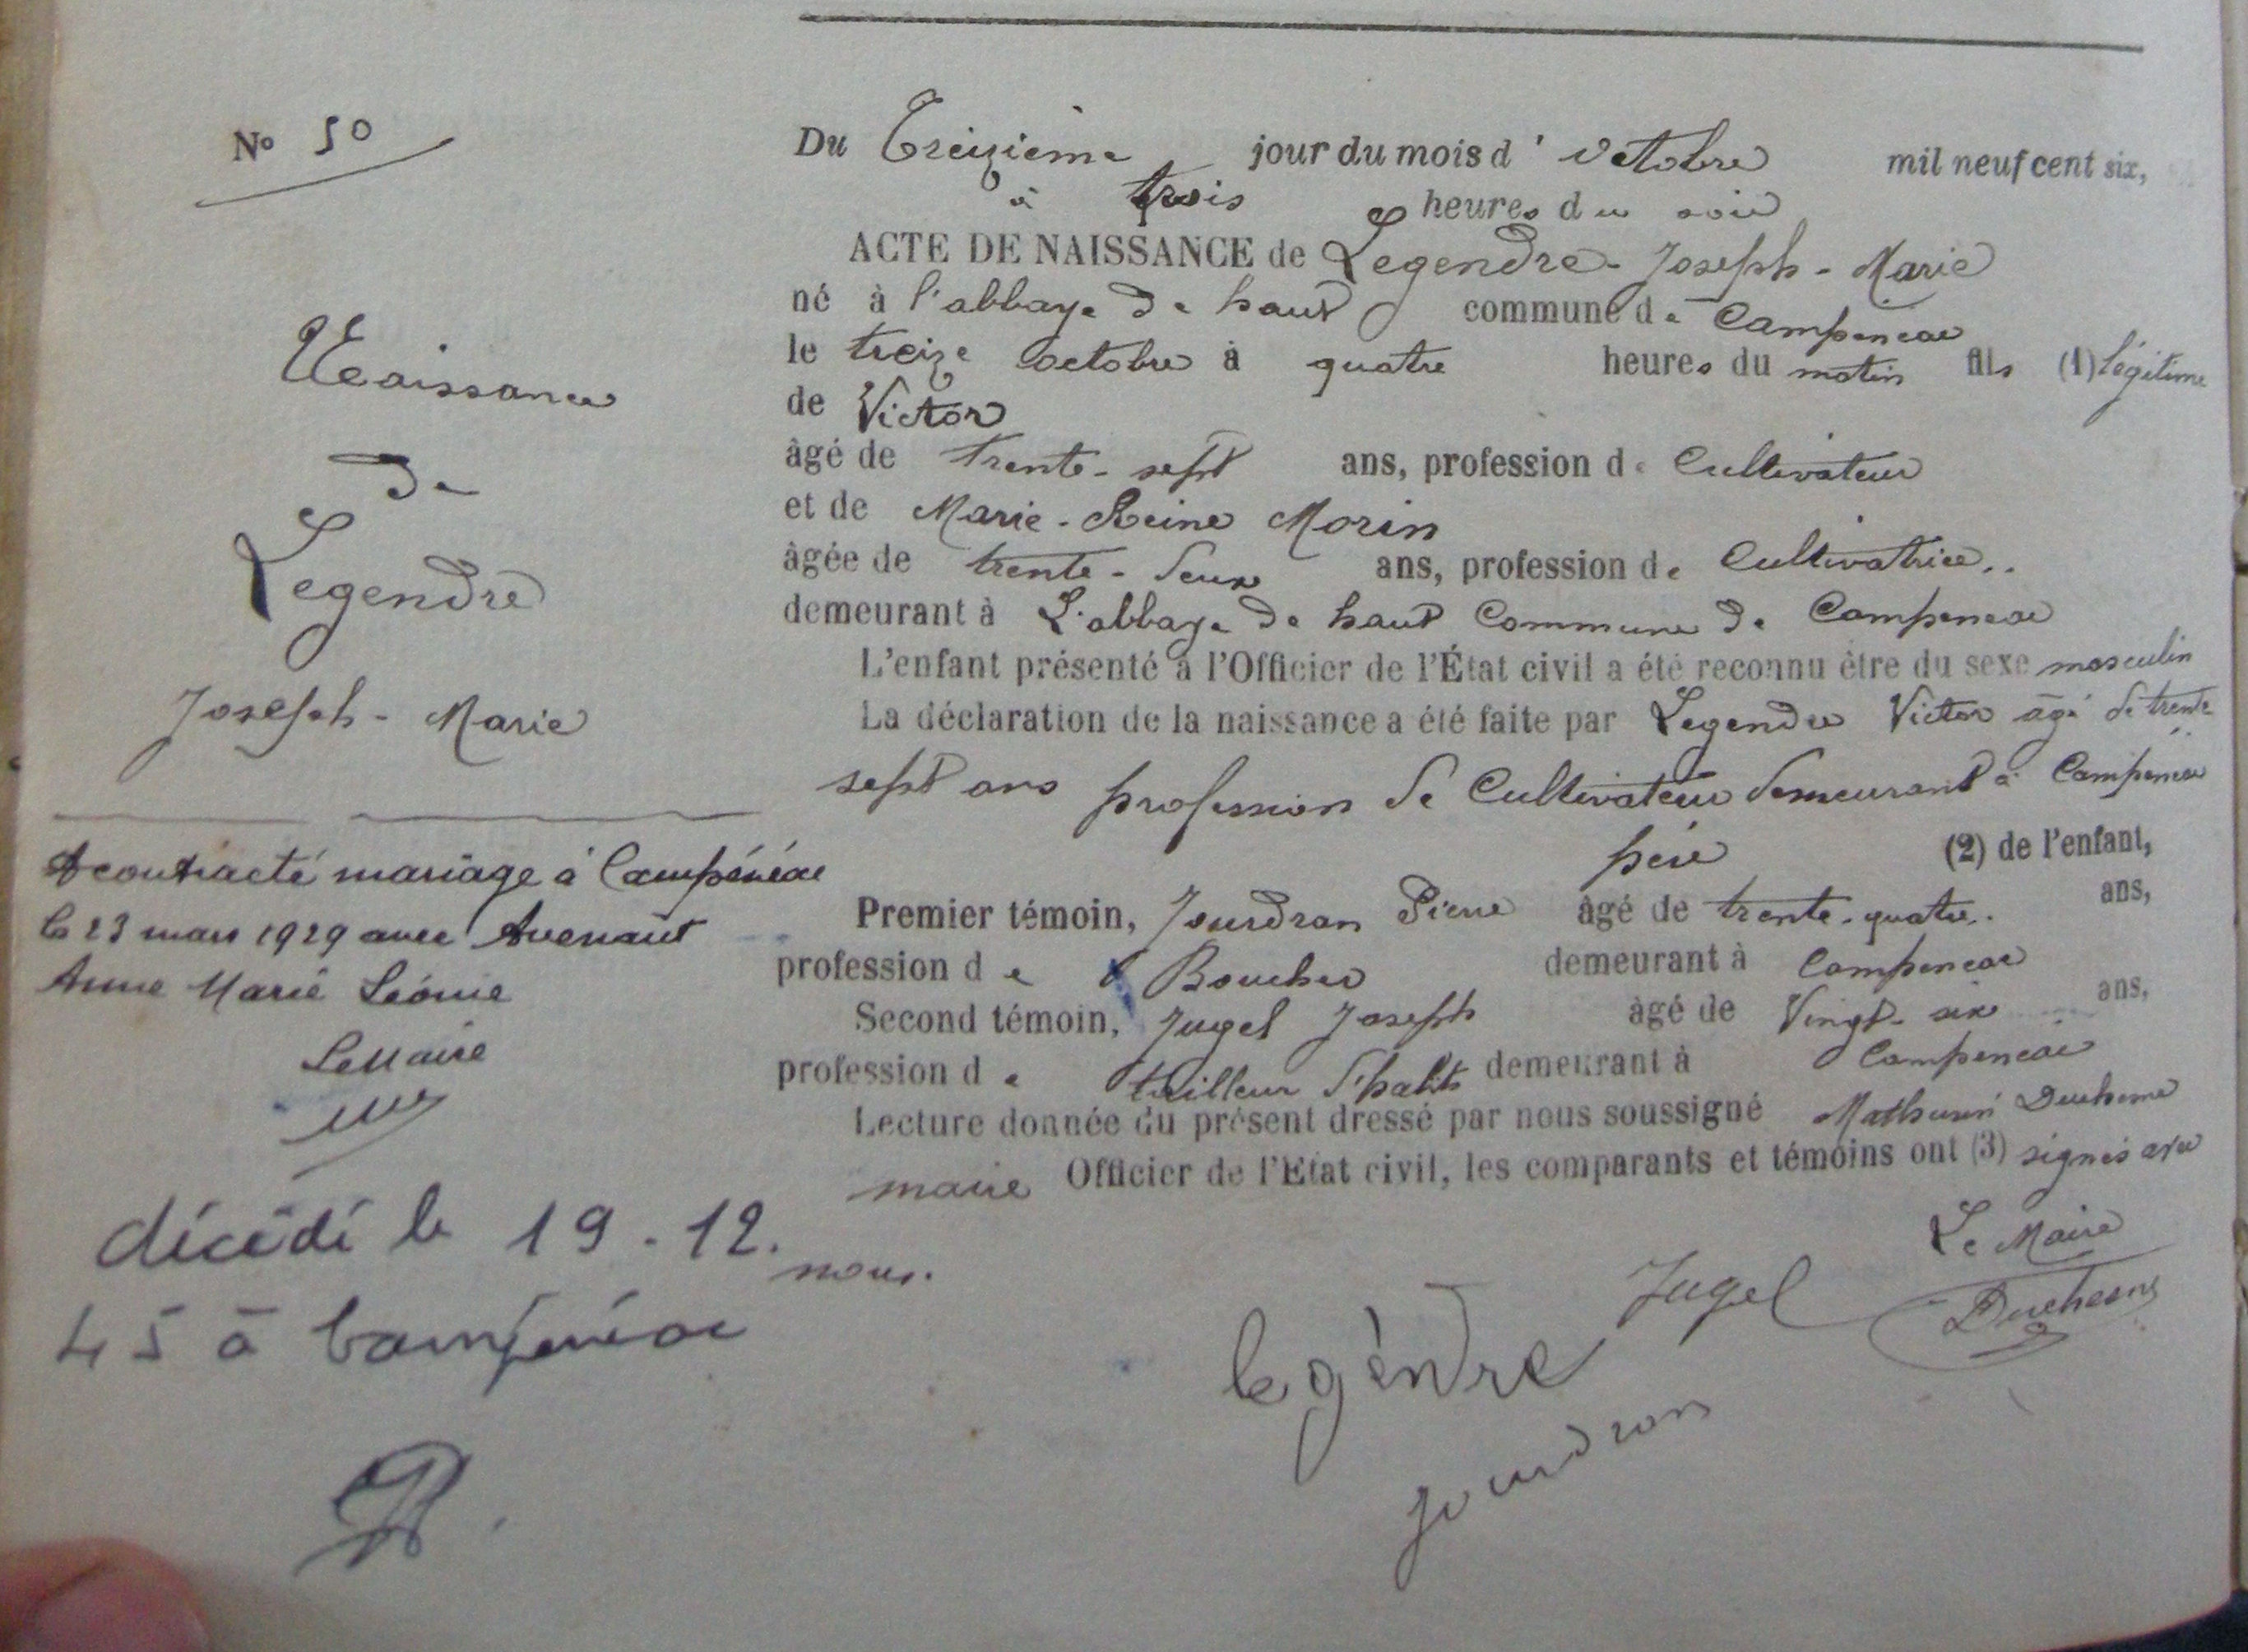 N° 50
Naissance
de
Legendre
Joseph - Marie
A contracté mariage à Campénéac
le 23 mars 1929 avec Avenaut
Anne Marie Léonie
Le Maire
décédé le 19 - 12.
45 à Campénéac
Du Treizième jour du mois d' octobre mil neuf cent six,
à trois heures du soir
ACTE DE NAISSANCE de Legendre - Joseph - Marie
né à l'abbaye de haut commune de Campeneac
le treize octobre à quatre heures du matin fils (1) légitime
de Victor
âgé de trente - sept ans, profession de Cultivateur
et de Marie - Reine Morin
âgée de trente - deux ans, profession de Cultivatrice..
demeurant à L'abbaye de haut Commune de Campeneac
L'enfant présenté à l'Officier de l'État civil a été reconnu être du sexe masculin
La déclaration de la naissance a été faite par Legendre Victor âgé de trente
sept ans profession de Cultivateur demeurant à Campeneac
père (2) de l'enfant,
Premier témoin, Jourdran Pierre âgé de trente - quatre.. ans,
profession de Boucher demeurant à Campeneac
Second témoin, Jugel Joseph âgé de Vingt - six ans,
profession de tailleur d'habits demeurant à Campeneac
Lecture donnée du présent dressé par nous soussigné Mathurin Duchesne
maire Officier de l'Etat civil, les comparants et témoins ont (3) signés avec
nous.
Le Maire
Jugel
Duchesne
legendre
jourdran